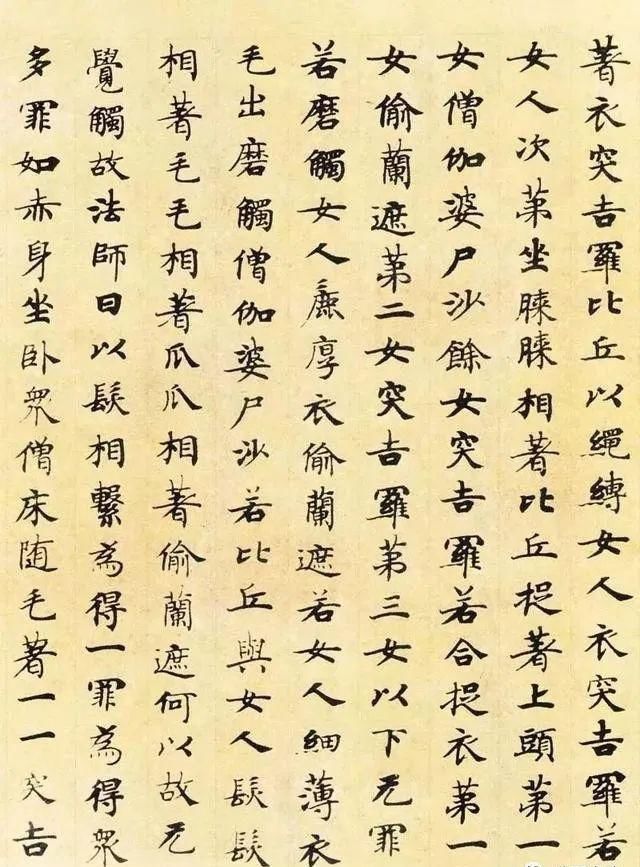 著衣突吉羅比丘以繩縛女人衣突吉羅若
女人次第坐膝膝相著比丘捉著上頭第一
女僧伽婆尸沙餘女突吉羅若合捉衣第一
女偷蘭遮第二女突吉羅第三女以下无罪
若磨觸女人麁厚衣偷蘭遮若女人細薄衣
毛出磨觸僧伽婆尸沙若比丘與女人髮髮
相著毛毛相著爪爪相著偷蘭遮何以故无
覺觸故法師曰以髮相繫為得一罪為得眾
多罪如赤身坐卧眾僧床随毛著一一突吉